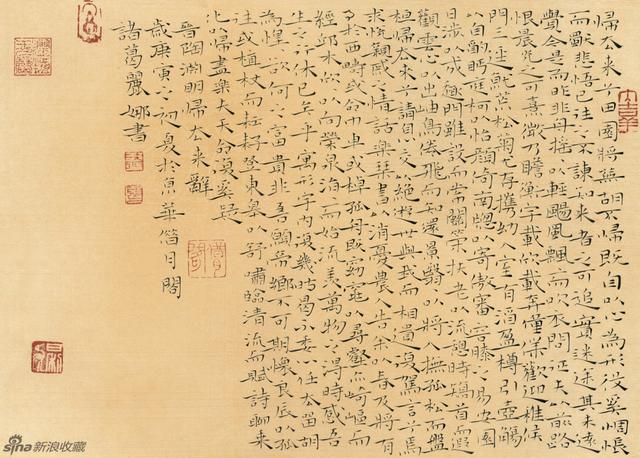 歸去來兮田園將蕪胡不歸既自以心為形役奚惆悵
而獨悲悟已往之不諫知來者之可追實迷途其未遠
覺今是而昨非舟搖以輕颺風飄飄而吹衣問征夫以前路
恨晨光之熹微乃瞻衡宇載欣載奔僮僕歡迎稚子候
門三逕就荒松菊猶存攜幼入室有酒盈樽引壺觴
以自酌眄庭柯以怡顏倚南窗以寄傲審容膝之易安園
日涉以成趣門雖設而常關策扶老以流憩時矯首而遐
觀雲無心以出岫鳥倦飛而知還景翳翳以將入撫孤松而盤
桓歸去來兮請息交以絕遊世與我而相遺復駕言兮焉
求悅親戚之情話樂琴書以消憂農人告余以春及將有
事於西疇或命巾車或棹孤舟既窈窕以尋壑亦崎嶇而
經邱木欣欣以向榮泉涓涓而始流羨萬物之得時感吾
生之行休已矣乎寓形宇內復幾時曷不委心任去留胡
為惶惶欲何之富貴非吾願帝鄉不可期懷良辰以孤
往或植杖而耘耔登東皋以舒嘯臨清流而賦詩聊乘
化以歸盡樂夫天命復奚疑
晉陶淵明歸去來辭
歲庚寅之初夏於京華簪月閣
諸葛麗娜書
sina新浪收藏